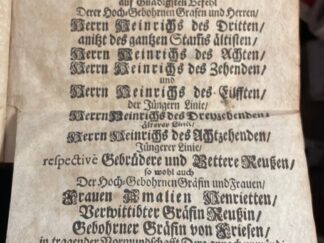 auf Gnädigsten Befehl
Derer Hoch-Gebohrnen Grafen und Herren/
Herrn Heinrichs des Dritten/
anitzt des gantzen Stam̃s ältisten/
Herrn Heinrichs des Achten/
Herrn Heinrichs des Zehenden/
und
Herrn Heinrichs des Eilfften/
der Jüngern Linie/
Herrn Heinrichs des Dreyzehenden/
älterer Linie/
Herrn Heinrichs des Achtzehenden/
Jüngerer Linie/
respectivè Gebrüdere und Vettere Reußen/
so wohl auch
Der Hoch-Gebohrnen Gräfin und Frauen/
Frauen Amalien Henrietten/
Verwittibter Gräfin Reußin/
Gebohrner Gräfin von Friesen/
in tragender Vormundschafft